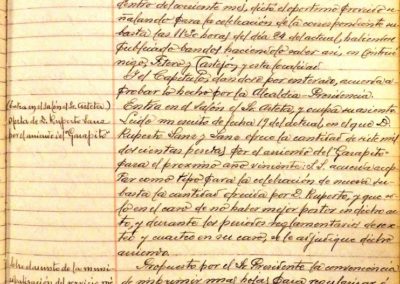 dentro del corriente mes, dictó el oportuno proveido se-
ñalando para la celebración de la correspondiente su-
basta las 11½ horas del día 24 del actual, habiendose
publicado bandos haciendo saber así, en Cintrué-
nigo, Fitero y Castejón, y esta localidad.
El Capítulo, dandose por enterado, acuerda a-
probar lo hecho por la Alcaldía-Presidencia.
(Entra en el Salón el Sr. Arteta)
Oferta de D. Ruperto Sanz
por el arriendo del "Garapito"
Entra en el Salón el Sr. Arteta, y ocupa su asiento.
Leido un escrito de fecha 19 del actual, en el que D.
Ruperto Sanz y Sanz ofrece la cantidad de siete mil
doscientas pesetas por el arriendo del Garapito
para el proximo año viniente; S.S. acuerda acep-
tar como tipo para la celebración de nueva su-
basta la cantidad ofrecida por D. Ruperto, y que so-
lo en el caso de no haber mejor postor en dicho ac-
to, y durante los periodos reglamentarios de sex-
teo y cuarteo en su caso, se le adjudique dicho
arriendo.
asunto de la muni-
Propuesto por el Sr. Presidente la conveniencia
de imprimir unas hojas para